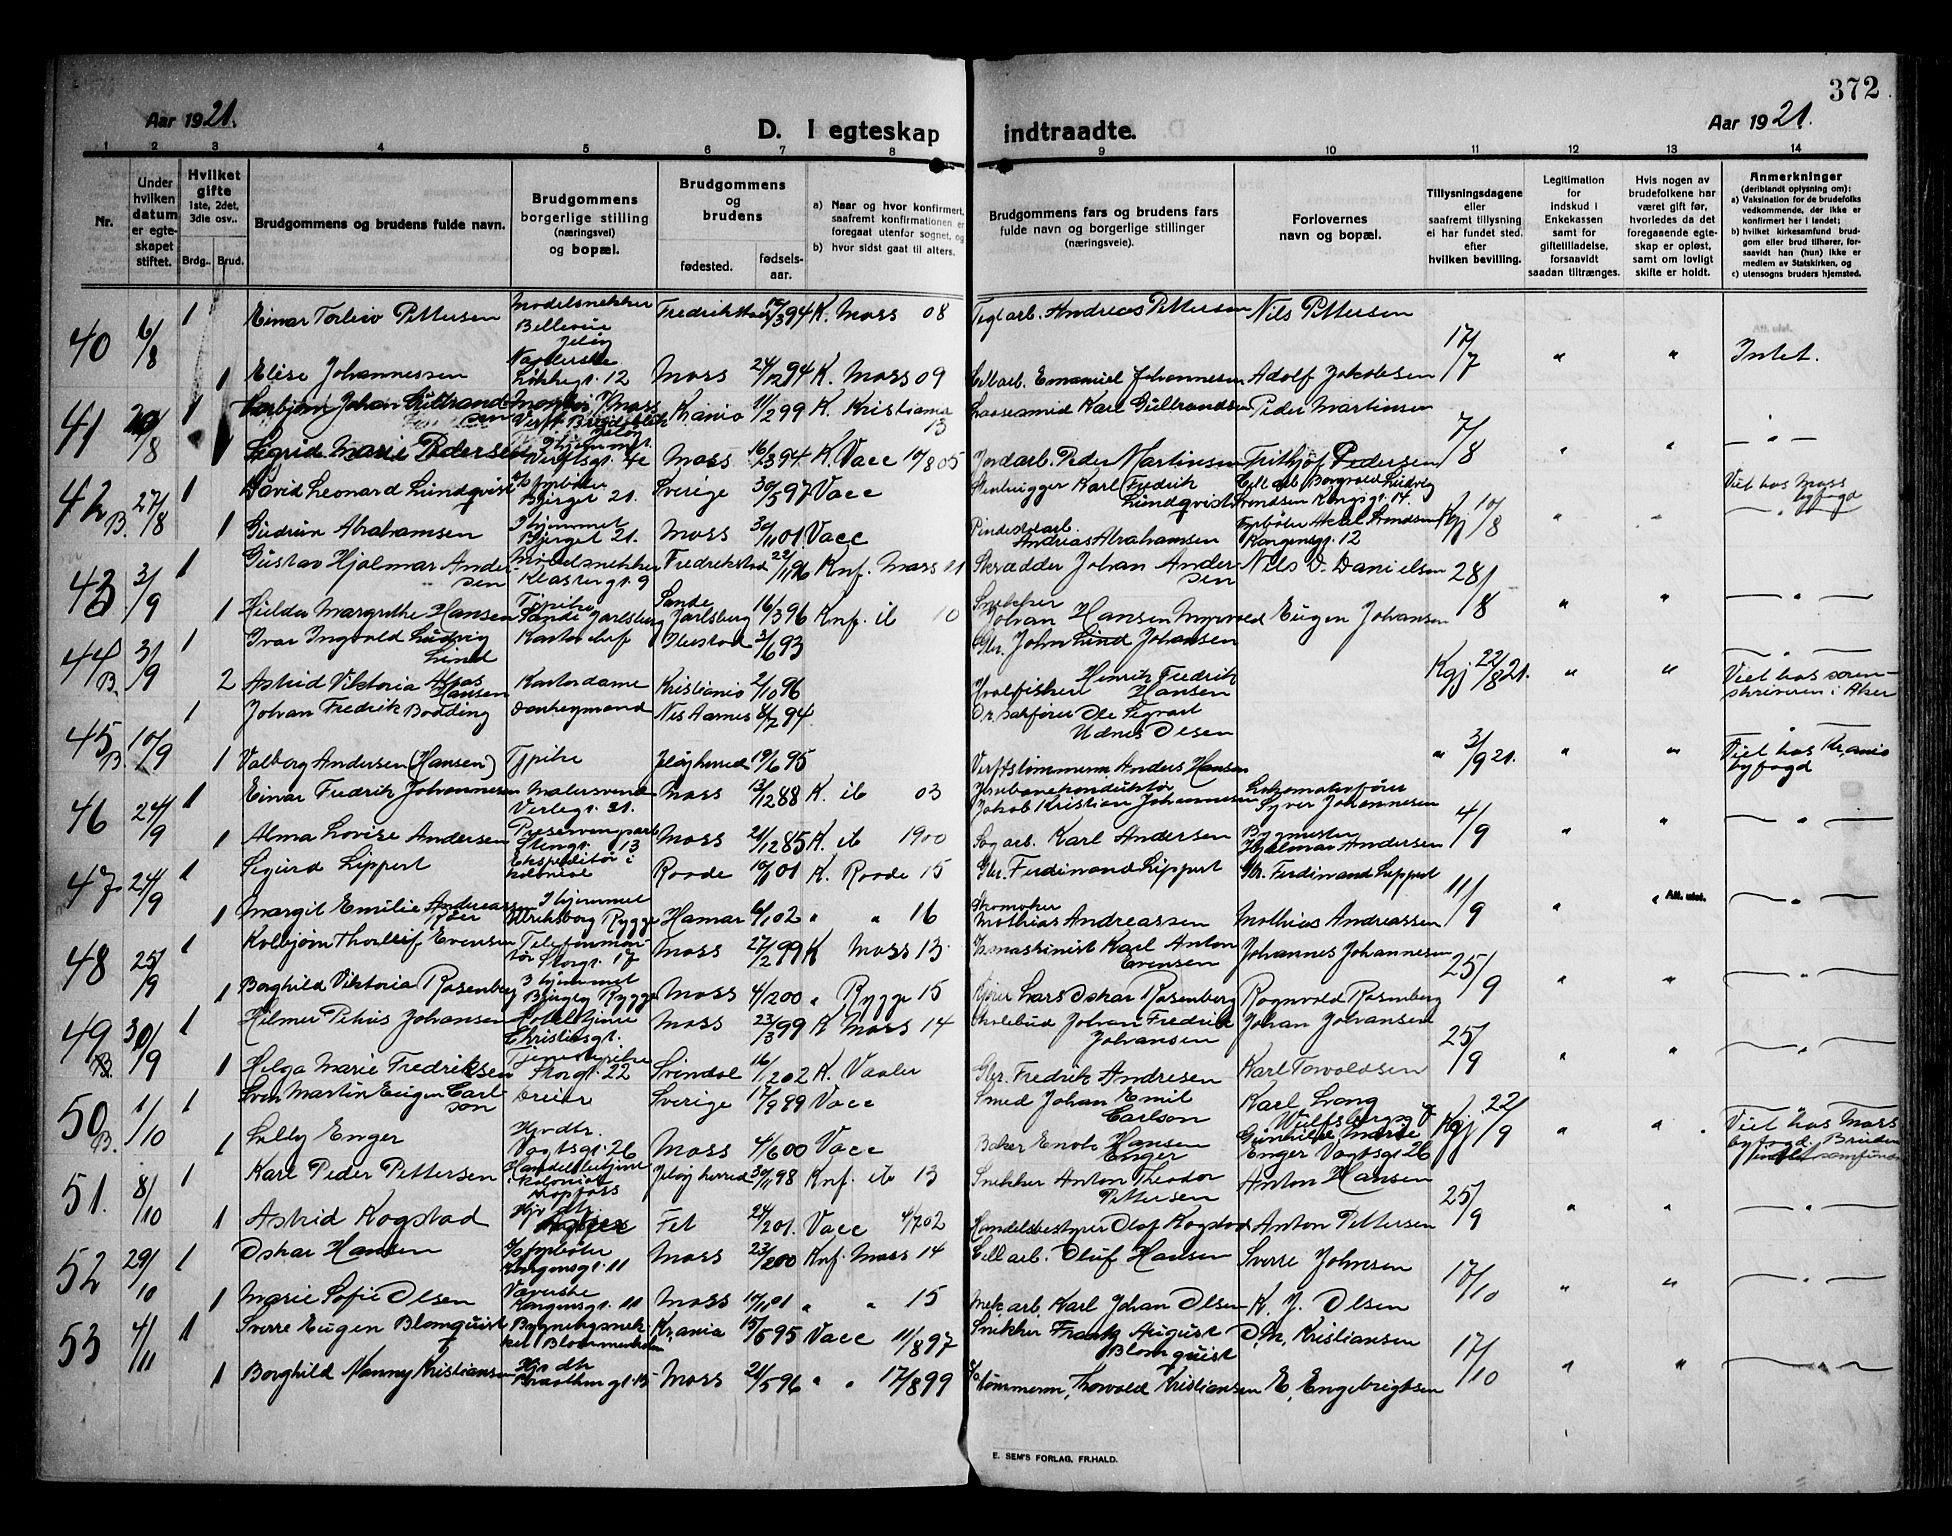 372
Aar 1921.
D. I egteskap indtraadte.
Aar 1921.
1 2 3 4 5 6 7 8 9 10 11 12 13 14
Nr.
Under hvilken datum er egteskapet stiftet.
Hvilket gifte 1ste, 2det, 3die osv..
Brdg.. Brud.
Brudgommens og brudens fulde navn.
Brudgommens borgerlige stilling (næringsvei) og bopæl.
Brudgommens og brudens
fødested. fødselsaar.
a) Naar og hvor konfirmert, saafremt konfirmationen er foregaat utenfor sognet, og
b) hvor sidst gaat til alters.
Brudgommens fars og brudens fars fulde navn og borgerlige stillinger (næringsveie).
Forlovernes navn og bopæl.
Tillysningsdagene eller saafremt tillysning ei har fundet sted. efter hvilken bevilling.
Legitimation for indskud i Enkekassen samt for giftetilladelse, forsaavidt saadan tiltrænges.
Hvis nogen av brudefolkene har været gift før, hvorledes da det foregaaende egteskap er opløst, samt om lovlig skifte er holdt.
Anmerkninger
(deriblandt oplysning om):
a) Vaksination for de brudefolks vedkommende, der ikke er konfirmert her i landet;
b) hvilket kirkesamfund brudgom eller brud tilhører, forsaavidt han (hun) ikke er medlem av Statskirken, og
c) utensogns bruders hjemsted.
40 6/8 1 Einar Torleiv Pettersen Modelsnekker Bellevue Jeløy Fredrikstad 94 K. Moss 08 Teglarb. Andreas Pettersen Nils Pettersen 17/7 " " Intet.
1 Elise Johannessen 12 Moss 24/12 94 K. Moss 09 Cellarb. Emanuel Johannesen Adolf Jakobsen
41 20/8 1 Torbjørn Johan Gulbrandsen Krania 11/2 99 K. Kristiania 13 Karl Gulbrandsen Peder Martinsen 7/8 " " — " —
1 Sigrid Marie Pedersen I hjemmet Verftsgt. 4c Moss 16/3 94 K. Vacc 10/8 05 Jordarb. Peder Martinsen Frithjof Pedersen
42 B. 27/8 1 David Leonard Lundqvist Bjerget 21. Sverige 30/5 97 Vacc Stenhugger Karl Fredrik Lundqvist Cellarb Borgvald Ludvig Arndsen Kongsgt. 14. Kgj 10/8 " " Viet hos Moss byfogd
1 Gudrun Abrahamsen I hjemmet Bjerget 21. Moss 30/11 01. Vacc Andreas Abrahamsen Fyrbøter Axel Arndsen Kongensgt. 12
43 3/9 1 Gustav Hjalmar Andersen Modelsnekker Klostergt. 9 Fredrikstad 22/11 96 Knf. Moss 11 Skrædder Johan Andersen Nils D. Danielsen 28/8 " " — " —
1 Hilda Margrethe Hansen Tjpike Sande Jarlsberg Sande Jarlsberg 16/3 96 Knf. ib 10 Johan Hansen Myrvold Eugen Johansen
44 B. 3/9 1 Ivar Ingvald Ludvig Lind Kontorchef Ibestad 3/6 93 Gbr. John Lind Johansen Kgj 22/8 21. " " Viet hos sorenskriveren i Aker
2 Astrid Viktoria Hansen Kontordame Kristiania 2/10 96 Hvalfisker Henrik Fredrik Hansen
45 B. 10/9 1 Johan Fredrik Bodding Nes Aarnes 8/7 94. Ole Sigvart Udnes Olsen " 3/9 21. " " Viet hos Krania byfogd
1 Valborg Andersen (Hansen) Tjpike Jeløy herred 19/6 95 Verftstømmerm Anders Hansen
46 24/9 1 Einar Fredrik Johannesen Malersvend Verlegt. 21. Moss 13/12 88 K. ib 03 Jernbanekonduktør Jakob Kristian Johannesen Lokomotivfører Syver Johannesen 4/9 " " — " —
1 Alma Lovise Andersen Stengt. 13 Moss 21/12 85 K. ib 1900 Sagarb. Karl Andersen Bygmester Hjalmar Andersen
47. 24/9 1 Sigurd Lippert Ekspeditør i kolonial Raade 01 K. Raade 15 Gbr. Ferdinand Lippert Gbr. Ferdinand Lippert 11/9 " " Att. utst. — " —
1 Margit Emilie Andreassen Røer I hjemmet Ulriksborg Rygge Hamar 6/1 02 " " 16 Skomaker Mathias Andreassen Mathias Andreassen
48 25/9 1 Kolbjørn Thorleif Evensen Telefonmontør Storgt. 17 Moss 27/2 99 K Moss 13. Karl Anton Evensen Johannes Johannesen 25/9 " " — " —
1 Borghild Viktoria Rosenberg I hjemmet Rygge Moss 4/2 00 " Rygge 15 Lars Oskar Rosenberg Ragnvald Rosenberg
49 B. 30/9 1 Hilmer Petrus Johansen Christiesgt. Moss 23/3 99 K Moss 14 Johan Fredrik Johansen Johan Johansen 25/9 " " — " —
1 Helga Marie Fredriksen Tjenestepike Storgt. 22 Svindal 16/2 02 K. Vaaler Gbr. Fredrik Andresen Karl Torvaldsen
50 B. 1/10 1 Sven Martin Eugen Carlson Dreier Sverige 17/9 89 Vacc Smed Johan Emil Carlson Karl Lang Wulfsbergsgt Kgj 22/9 " " Viet hos Moss byfogd.
1 Lilly Enger Hjv dtr. Vogtsgt. 26 Moss 4/6 00 Vacc Baker Enok Hansen Enger Gunhild Marie Enger Vogtsgt 26
51. 8/10 1 Karl Peder Pettersen Handelsbetjent kolonial Jeløy herred 30/11 98 Knf. ib 13 Snekker Anton Theodor Pettersen Anton Hansen 25/9 " " — " —
1 Astrid Kogstad Hjv dtr Fet 24/2 01. Vacc 4/7 02 Handelsbestyrer Olaf Kogstad Anton Pettersen
52 29/10 1 Oskar Hansen Kongensgt. 11 Moss 23/2 00 Knf. Moss 14 Cellarb. Oluf Hansen Sverre Johnsen 17/10 " " — " —
1 Marie Sofie Olsen Væverske Kongensgt. 11 Moss 01 " " 15 Mek. arb. Karl Johan Olsen K. J. Olsen
53 4/11 1 Sverre Eugen Blomquist Bygningssnekker Krania 15/5 95 Vacc 11/8 97 Snekker Frank August Blomquist D. M. Kristiansen 17/10 " " — " —
1 Borghild Nanny Kristiansen Hjv dtr Moss 21/5 96 " " 17/8 99 Tømmerm, Thorvald Kristiansen E. Engebrigtsen
E. SEM'S FORLAG, FR.HALD.